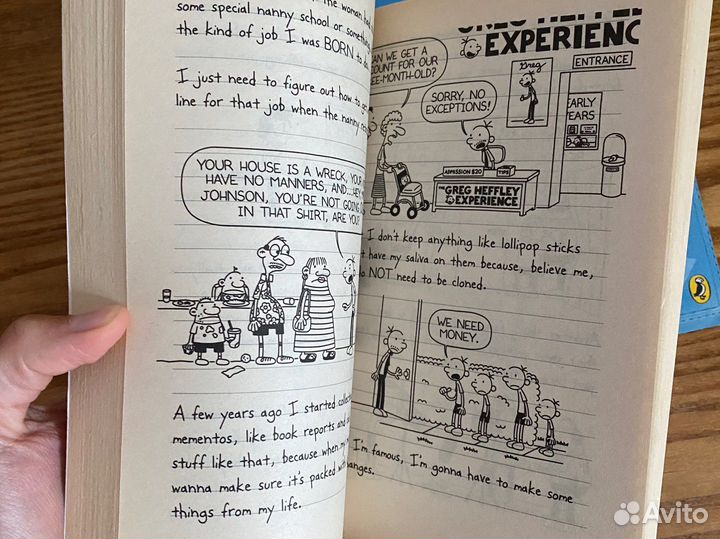 some special nanny school or
the kind of job I was BORN to
I just need to figure out how to
line for that job when the nanny
YOUR HOUSE IS A WRECK,
HAVE NO MANNERS, AND
JOHNSON, YOU'RE NOT GOING
IN THAT SHIRT, ARE
A few years ago I started
mementos, like book reports and
stuff like that, because when my
wanna make sure it's packed
things from my life.
EXPERIENC
CAN WE GET A
FOR OUR
MONTH-OLD?
SORRY, NO
EXCEPTIONS!
Greg
ENTRANCE
EARLY
YEARS
ADMISSION $20
TIPS
THE GREG HEFFLEY
EXPERIENCE
I don't keep anything like lollipop sticks
have my saliva on them because, believe me,
NOT need to be cloned.
WE NEED
MONEY.
I'm famous, I'm gonna have to make some
Avito